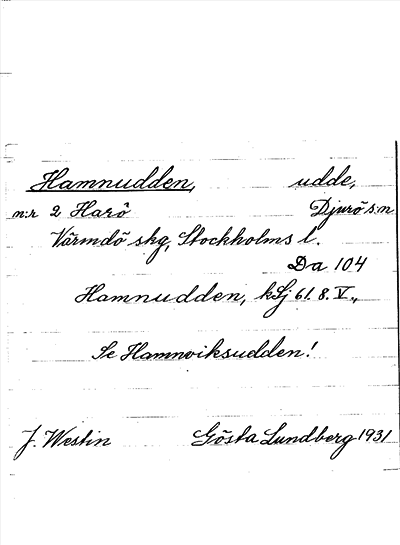 Hamnudden, udde,
n:r 2 Harö Djurö s:n
Värmdö skg, Stockholms l.
Da 104
Hamnudden, kSj 61. 8. V.,
Se Hamnviksudden!
J. Westin Gösta Lundberg 1931